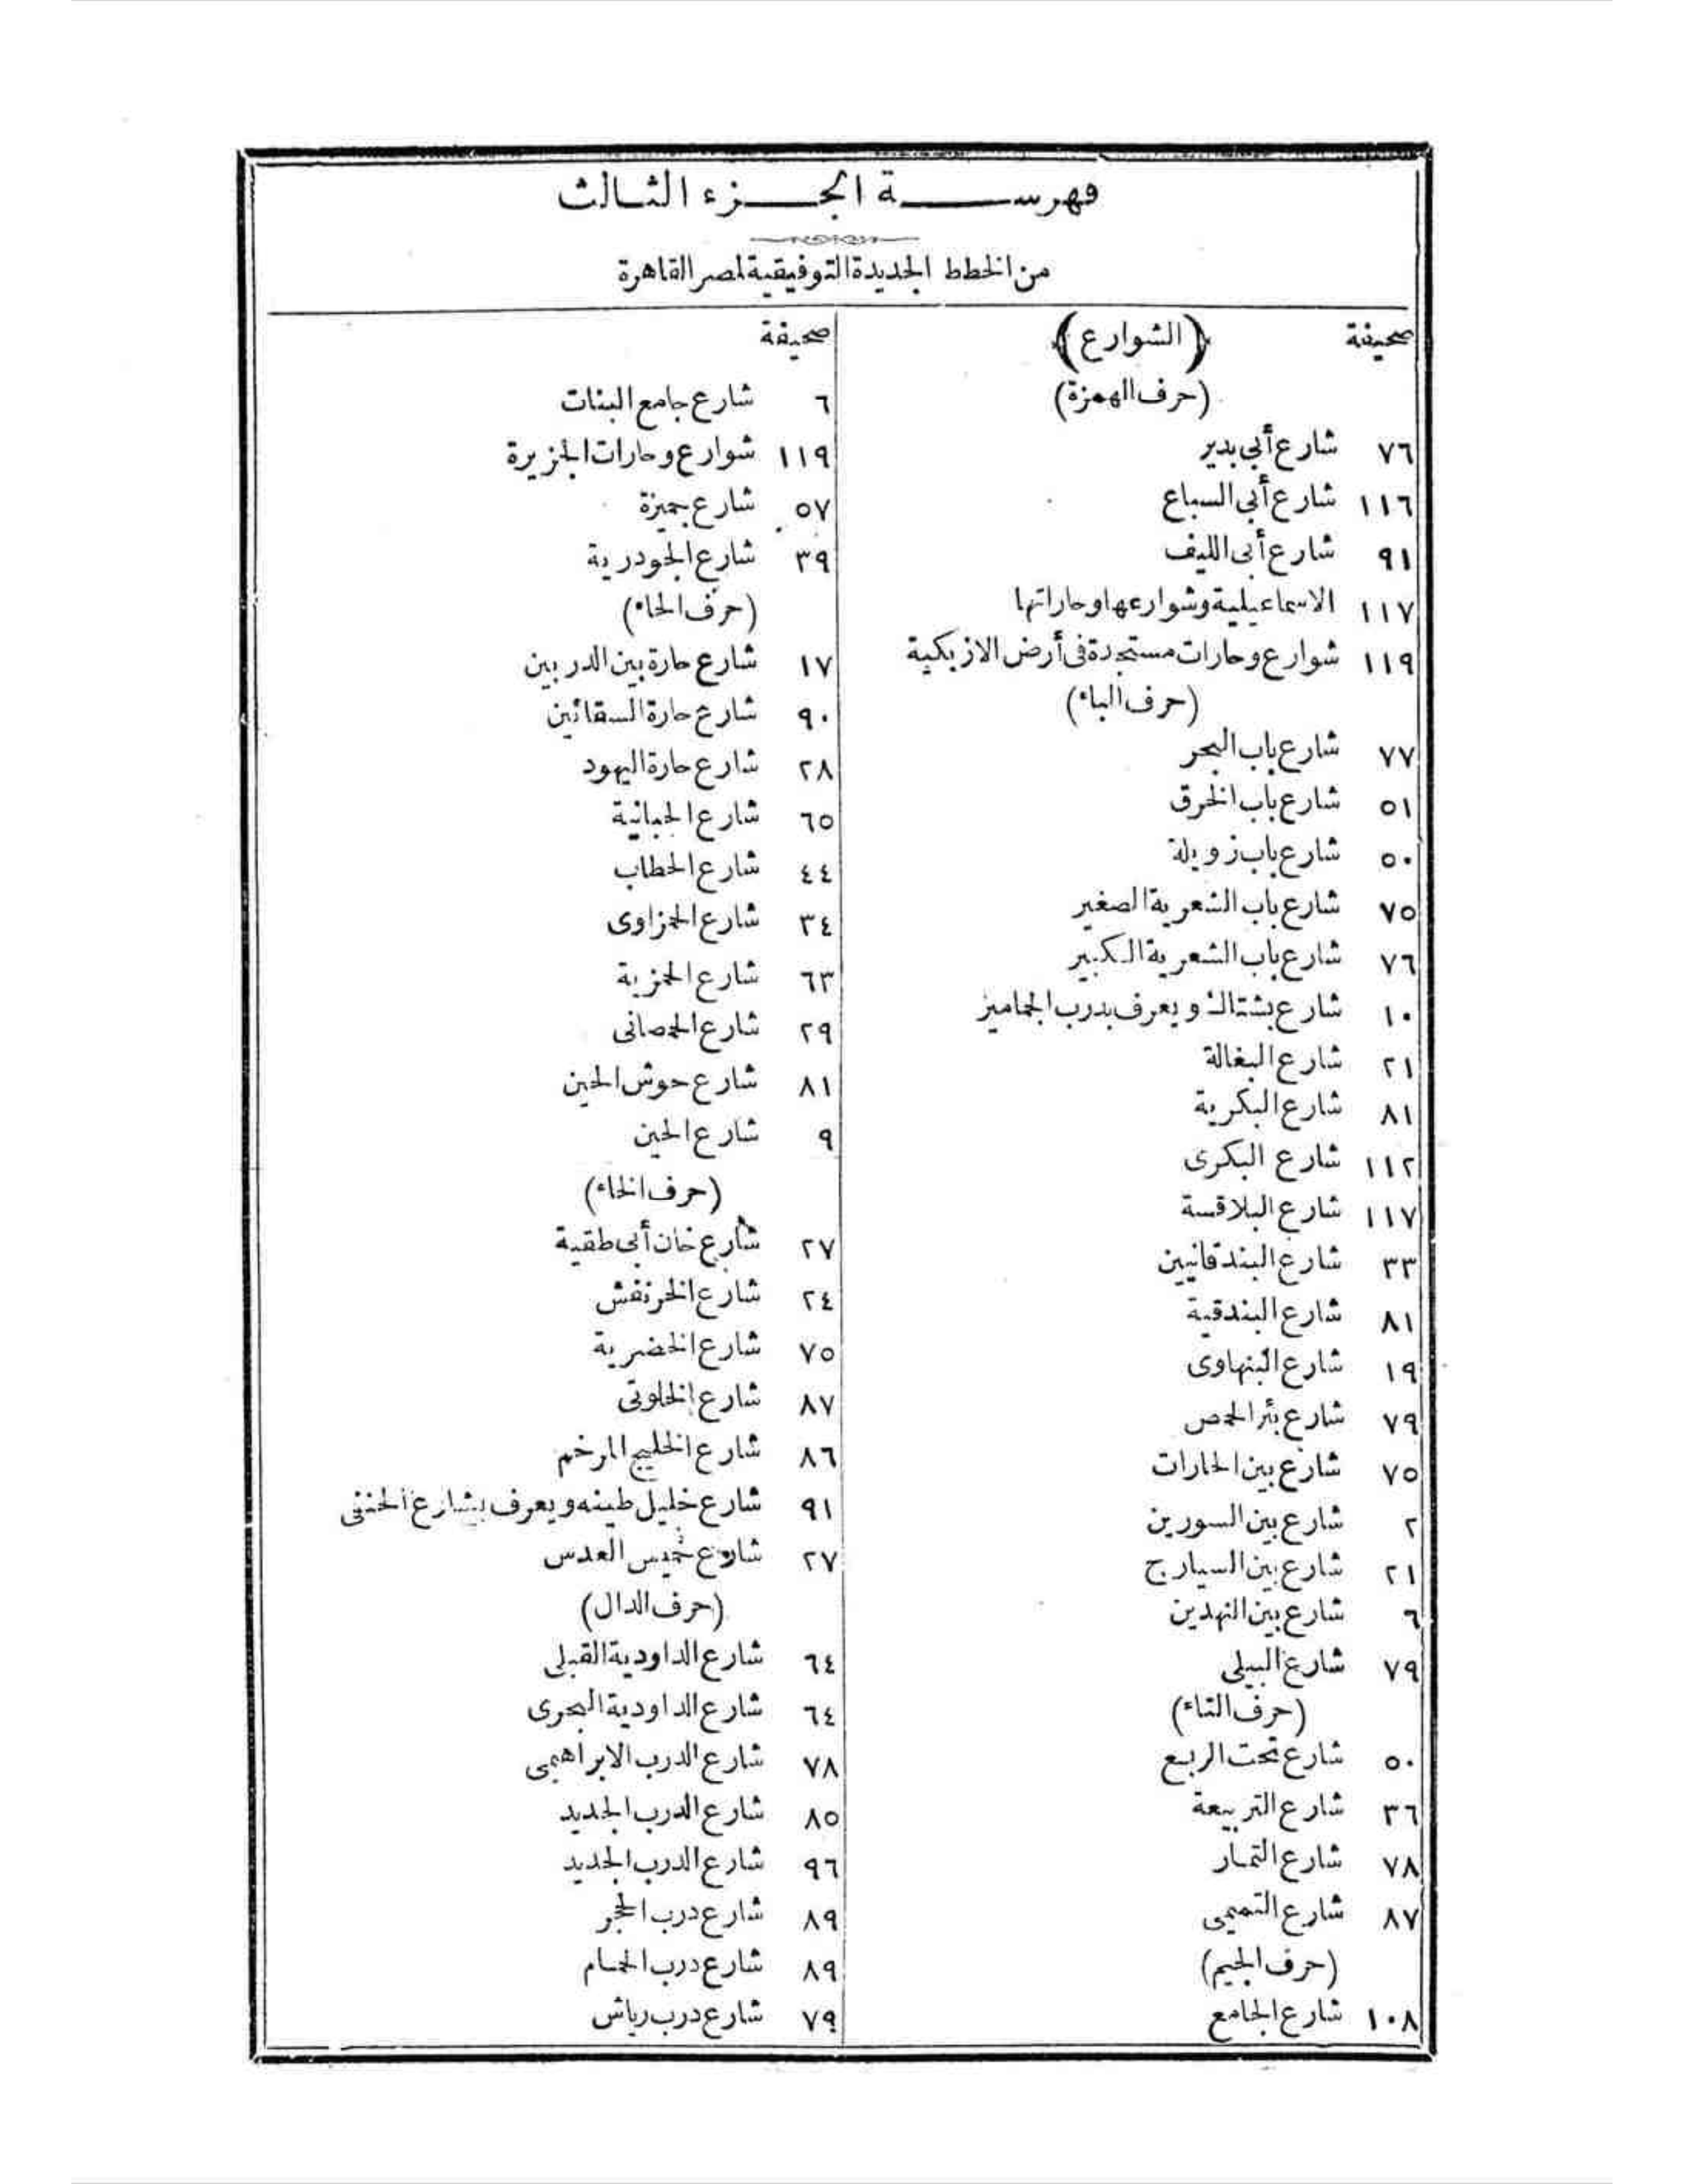 فهرسة الجزء الثالث
من الخطط الجديدة التوفيقية لمصر القاهرة
صحيفة
(الشوارع)
(حرف الهمزة)
٧٦ شارع أبي بدير
١١٦ شارع أبي السباع
٩١ شارع أبى الليف
١١٧ الاسماعيلية وشوارعها وحاراتها
١١٩ شوارع وحارات مستجدة فى أرض الازبكية
(حرف الباء)
٧٧ شارع باب البحر
٥١ شارع باب الخرق
٥٠ شارع باب زويلة
٧٥ شارع باب الشعرية الصغير
٧٦ شارع باب الشعرية الكبير
١٠ شارع بشتاك ويعرف بدرب الجماميز
٢١ شارع البغالة
٨١ شارع البكرية
١١٢ شارع البكرى
١١٧ شارع البلاقسة
٣٣ شارع البندقانيين
٨١ شارع البندقية
١٩ شارع البنهاوى
٧٩ شارع بئر الحمص
٧٥ شارع بين الحارات
٢ شارع بين السورين
٢١ شارع بين السيارج
٦ شارع بين النهدين
٧٩ شارع البيلى
(حرف التاء)
٥٠ شارع تحت الربع
٣٦ شارع التربيعة
٧٨ شارع التمار
٨٧ شارع التميمى
(حرف الجيم)
١٠٨ شارع الجامع
صحيفة
٦ شارع جامع البنات
١١٩ شوارع وحارات الجزيرة
٥٧ شارع جميزة
٣٩ شارع الجودرية
(حرف الحاء)
١٧ شارع حارة بين الدربين
٩٠ شارع حارة السقائين
٢٨ شارع حارة اليهود
٦٥ شارع الحبانية
٤٤ شارع الحطاب
٣٤ شارع الحمزاوى
٦٣ شارع الحمزية
٢٩ شارع الحمصانى
٨١ شارع حوش الحين
٩ شارع الحين
(حرف الخاء)
٢٧ شارع خان أبى طقية
٢٤ شارع الخرنفش
٧٥ شارع الخضرية
٨٧ شارع الخلوتى
٨٦ شارع الخليج المرخم
٩١ شارع خليل طينه ويعرف بشارع الحنفى
٢٧ شارع خميس العدس
(حرف الدال)
٦٤ شارع الداودية القبلى
٦٤ شارع الداودية البحرى
٧٨ شارع الدرب الابراهيمى
٨٥ شارع الدرب الجديد
٩٦ شارع الدرب الجديد
٨٩ شارع درب الحجر
٨٩ شارع درب الحمام
٧٩ شارع درب رياش